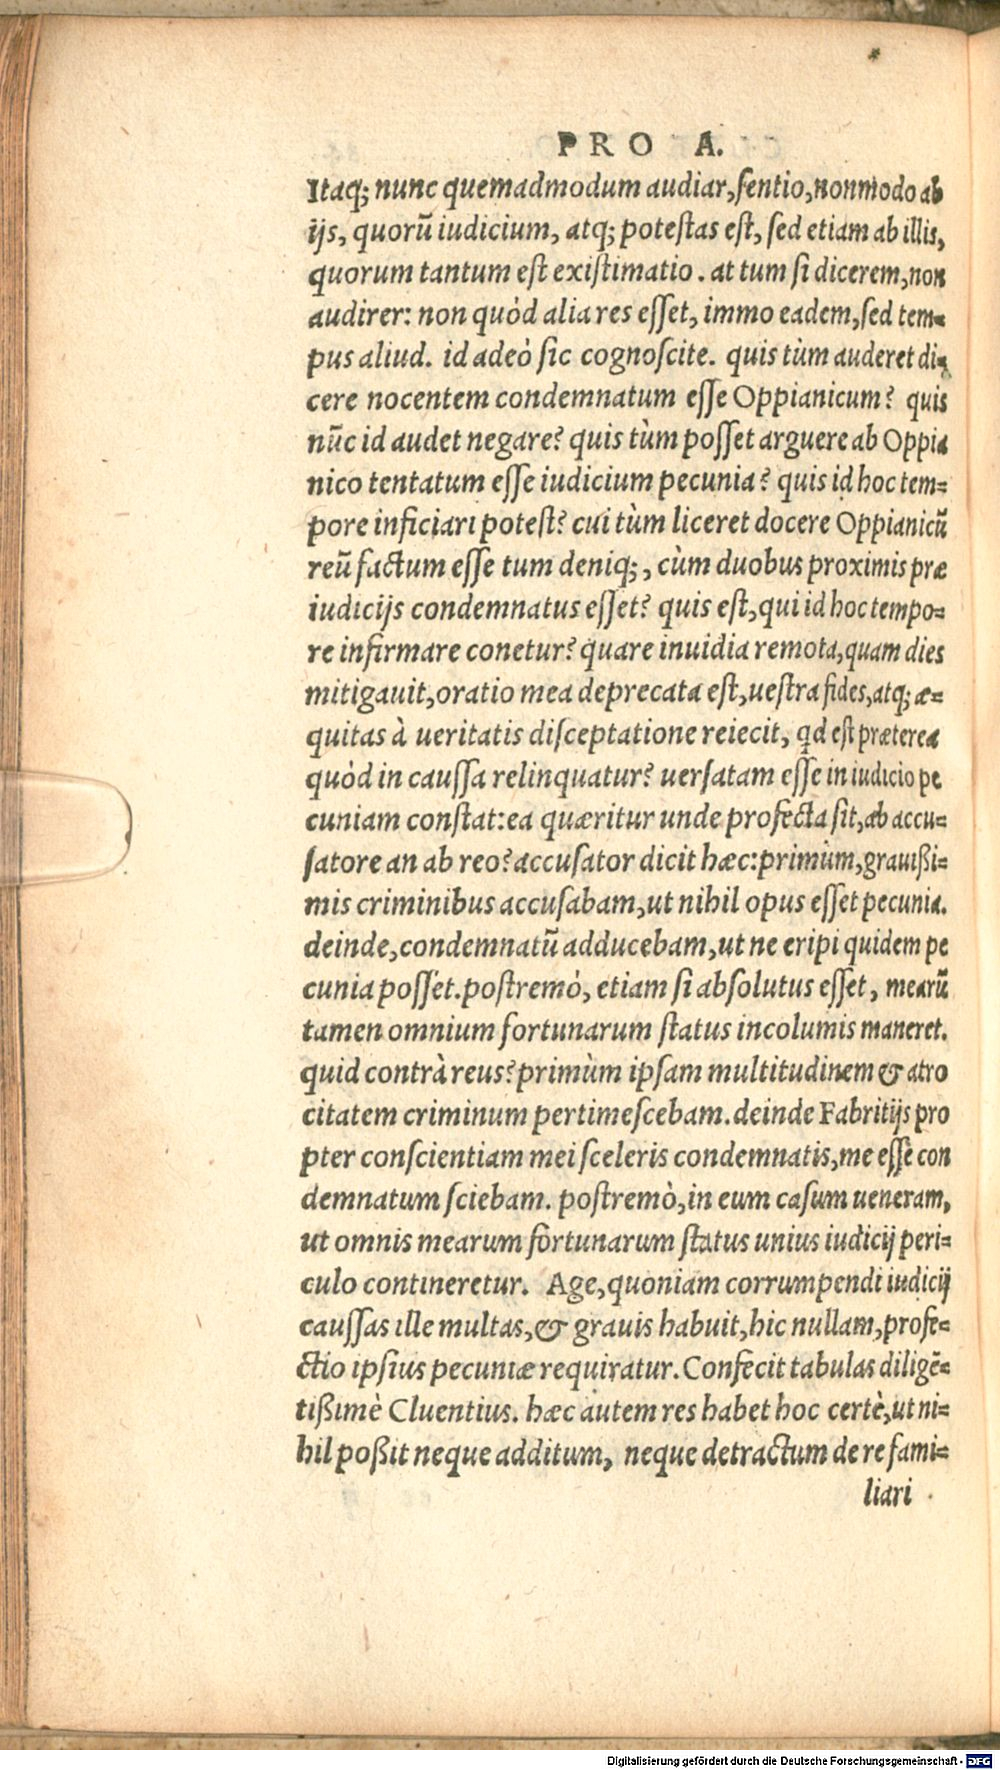 PRO A.
Itaq; nunc quemadmodum audiar, ſentio, nonmodo ab
ijs, quorũ iudicium, atq; poteſtas eſt, ſed etiam ab illis,
quorum tantum eſt exiſtimatio. at tum ſi dicerem, non
audirer: non quòd alia res eſſet, immo eadem, ſed tem=
pus aliud. id adeò ſic cognoſcite. quis tùm auderet di=
cere nocentem condemnatum eſſe Oppianicum? quis
nũc id audet negare? quis tùm poſſet arguere ab Oppia
nico tentatum eſſe iudicium pecunia? quis id hoc tem=
pore inficiari poteſt? cui tùm liceret docere Oppianicũ
reũ factum eſſe tum deniq;, cùm duobus proximis præ
iudicijs condemnatus eſſet? quis eſt, qui id hoc tempo=
re infirmare conetur? quare inuidia remota, quam dies
mitigauit, oratio mea deprecata eſt, ueſtra fides, atq; æ=
quitas à ueritatis diſceptatione reiecit, qd eſt præterea
quòd in cauſſa relinquatur? uerſatam eſſe in iudicio pe
cuniam conſtat: ea quæritur unde profecta ſit, ab accu=
ſatore an ab reo? accuſator dicit hæc: primùm, grauißi=
mis criminibus accuſabam, ut nihil opus eſſet pecunia.
deinde, condemnatũ adducebam, ut ne eripi quidem pe
cunia poſſet. poſtremò, etiam ſi abſolutus eſſet, mearũ
tamen omnium fortunarum ſtatus incolumis maneret.
quid contrà reus? primùm ipſam multitudinem & atro
citatem criminum pertimeſcebam. deinde Fabritijs pro
pter conſcientiam mei ſceleris condemnatis, me eſſe con
demnatum ſciebam. poſtremò, in eum caſum ueneram,
ut omnis mearum fortunarum ſtatus unius iudicij peri=
culo contineretur. Age, quoniam corrumpendi iudicij
cauſſas ille multas, & grauis habuit, hic nullam, profe=
ctio ipſius pecuniæ requiratur. Confecit tabulas diligẽ=
tißimè Cluentius. hæc autem res habet hoc certè, ut ni=
hil poßit neque additum, neque detractum de re fami=
liari
Digitalisierung gefördert durch die Deutsche Forschungsgemeinschaft - DFG